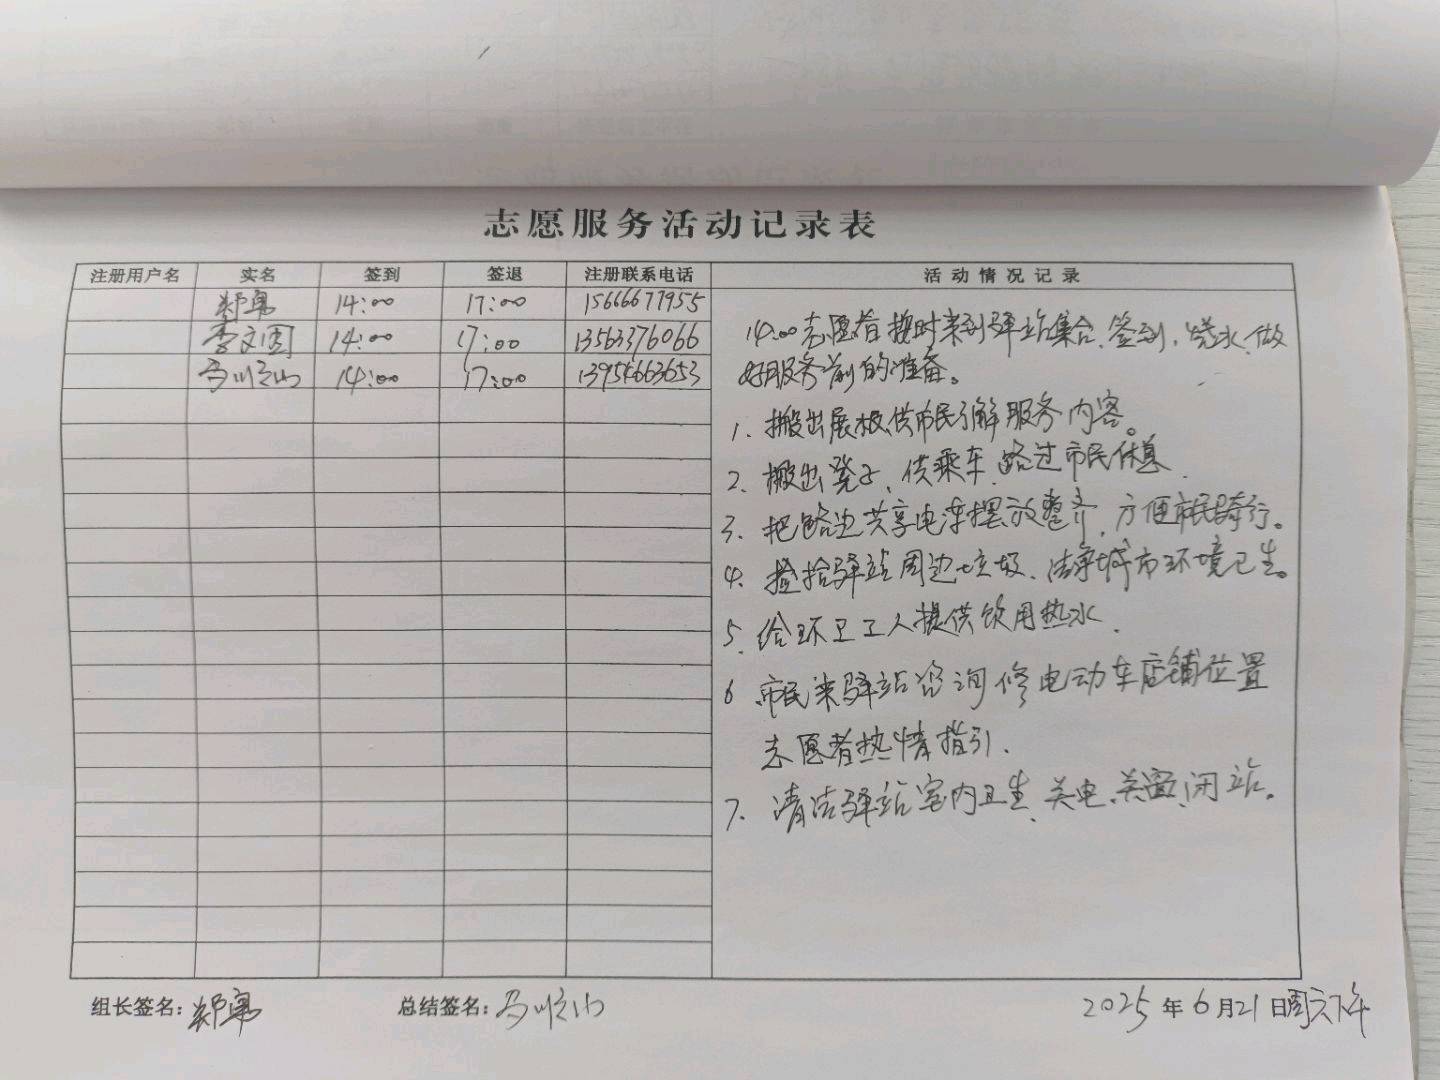 志愿服务活动记录表
注册用户名 实名 签到 签退 注册联系电话 活动情况记录
郑勇 14:00 17:00 15666677955
李文国 14:00 17:00 13563376066
马顺山 14:00 17:00 13954663653
14:00志愿者按时来到驿站集合、签到,烧水、做
好服务前的准备。
1、搬出展板,供市民了解服务内容。
2、搬出凳子,供乘车、路过市民休息.
3、把路边共享电车摆放整齐,方便市民骑行。
4、捡拾驿站周边垃圾、洁净城市环境卫生。
5、给环卫工人提供饮用热水.
6 市民来驿站咨询修电动车店铺位置
志愿者热情指引.
7、清洁驿站室内卫生、关电、关窗、闭站。
组长签名:郑勇 总结签名:马顺山 2025年6月21日周六下午